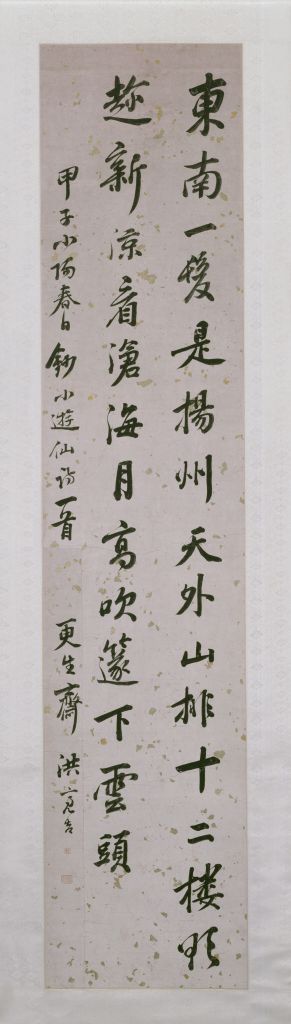 東南一髮是揚州天外山排十二樓欲
趂新涼看滄海月高吹篴下雲頭
甲子小陽春日鈔小遊仙詩一首 更生齋洪亮吉